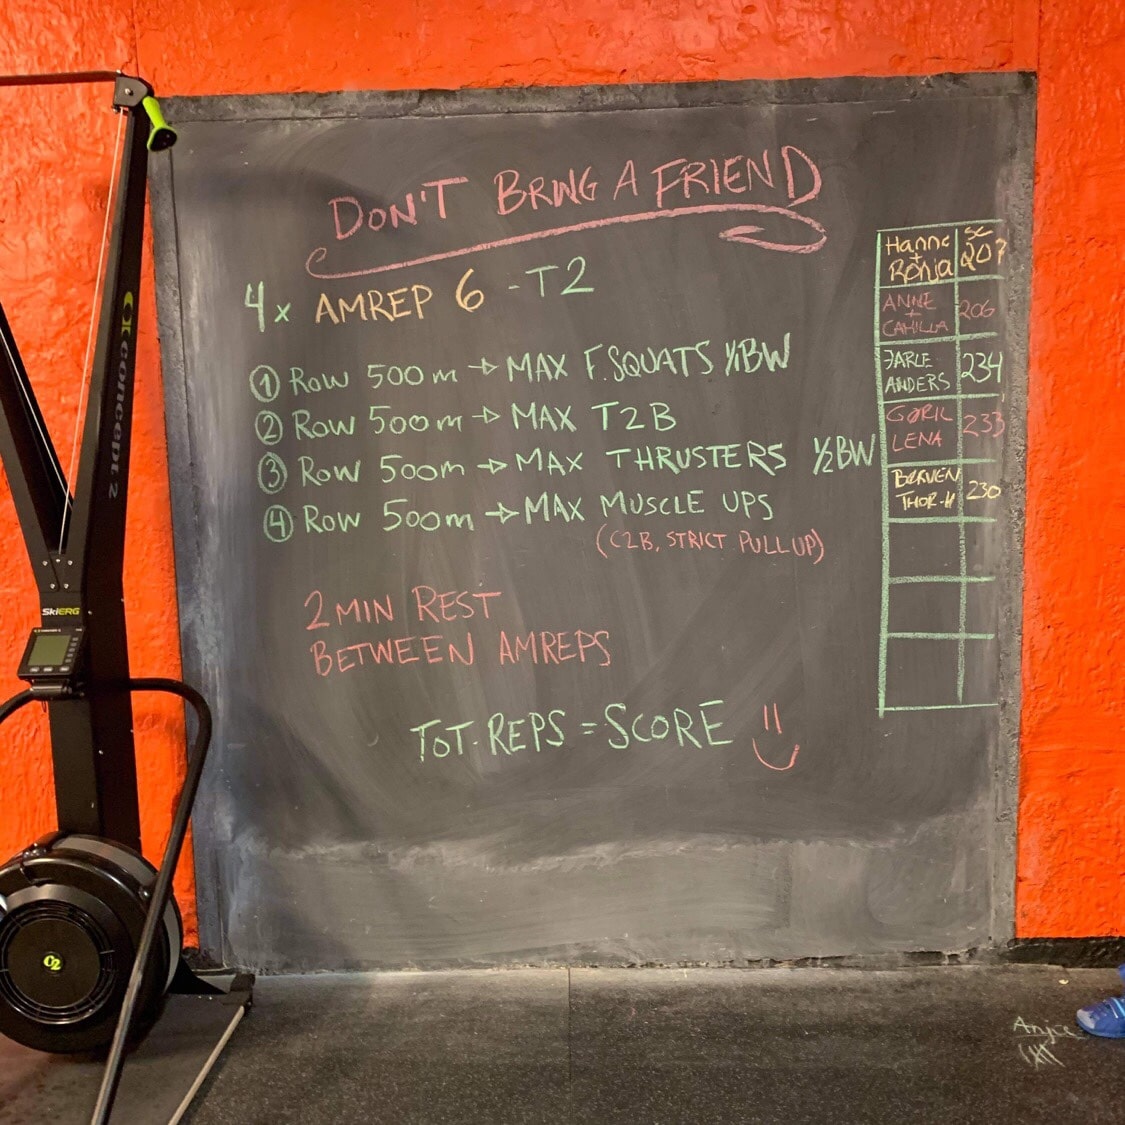 DON'T BRING A FRIEND
4x AMREP 6 - T2
① ROW 500m → MAX F.SQUATS 1/1BW
② ROW 500m → MAX T2B
③ ROW 500m → MAX THRUSTERS 1/2BW
④ ROW 500m → MAX MUSCLE UPS
(C2B, STRICT PULL UP)
2 MIN REST
BETWEEN AMREPS
TOT. REPS = SCORE
Hanne + Ronja sc 207
ANNE + CAMILLA 206
JARLE ANDERS 234
GØRIL LENA 233
THOR-H 230
concept 2
SkiERG
Anja